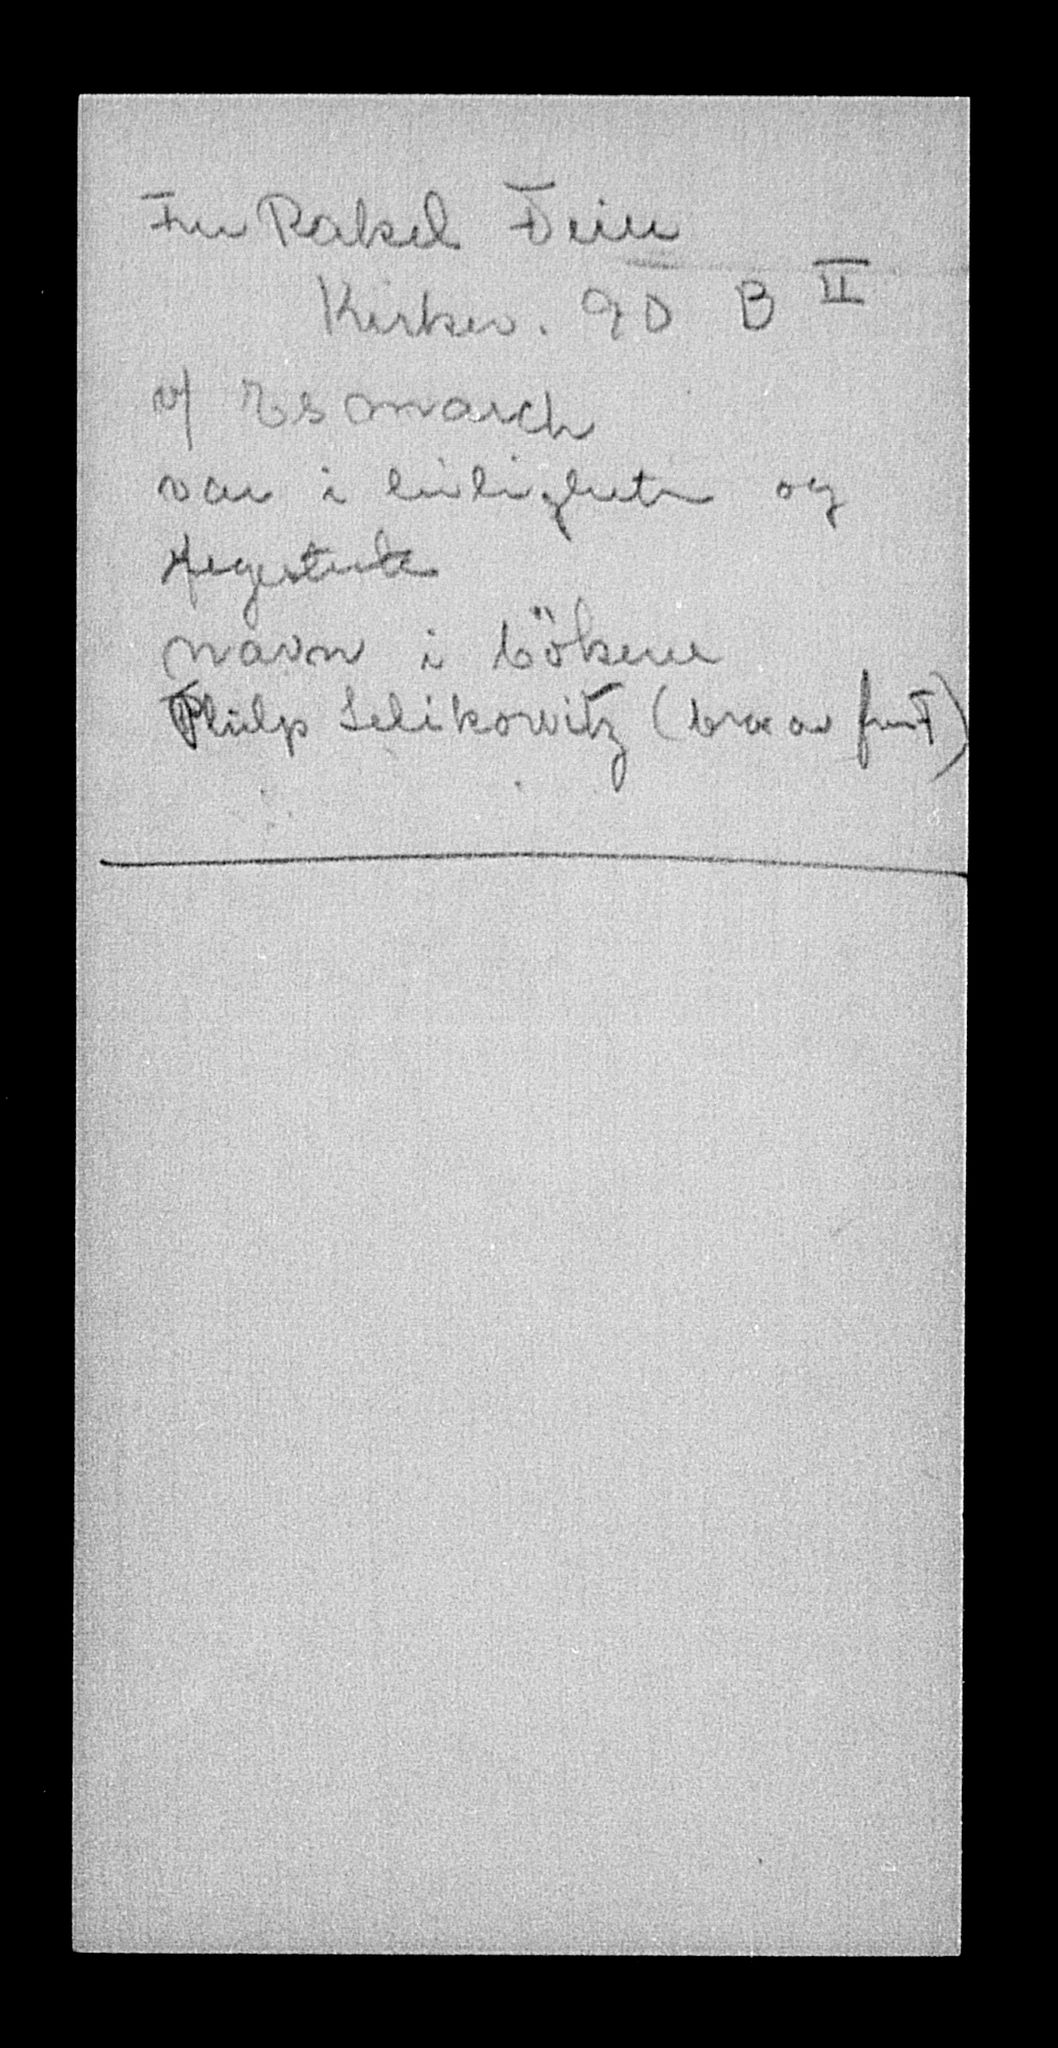 Fru Rakel Fein
Kirkev. 90 B II
v/ Esmarch
var i leiligheten og
registrerte
navn i bökene
Philip Selikowitz (bror av fru F)